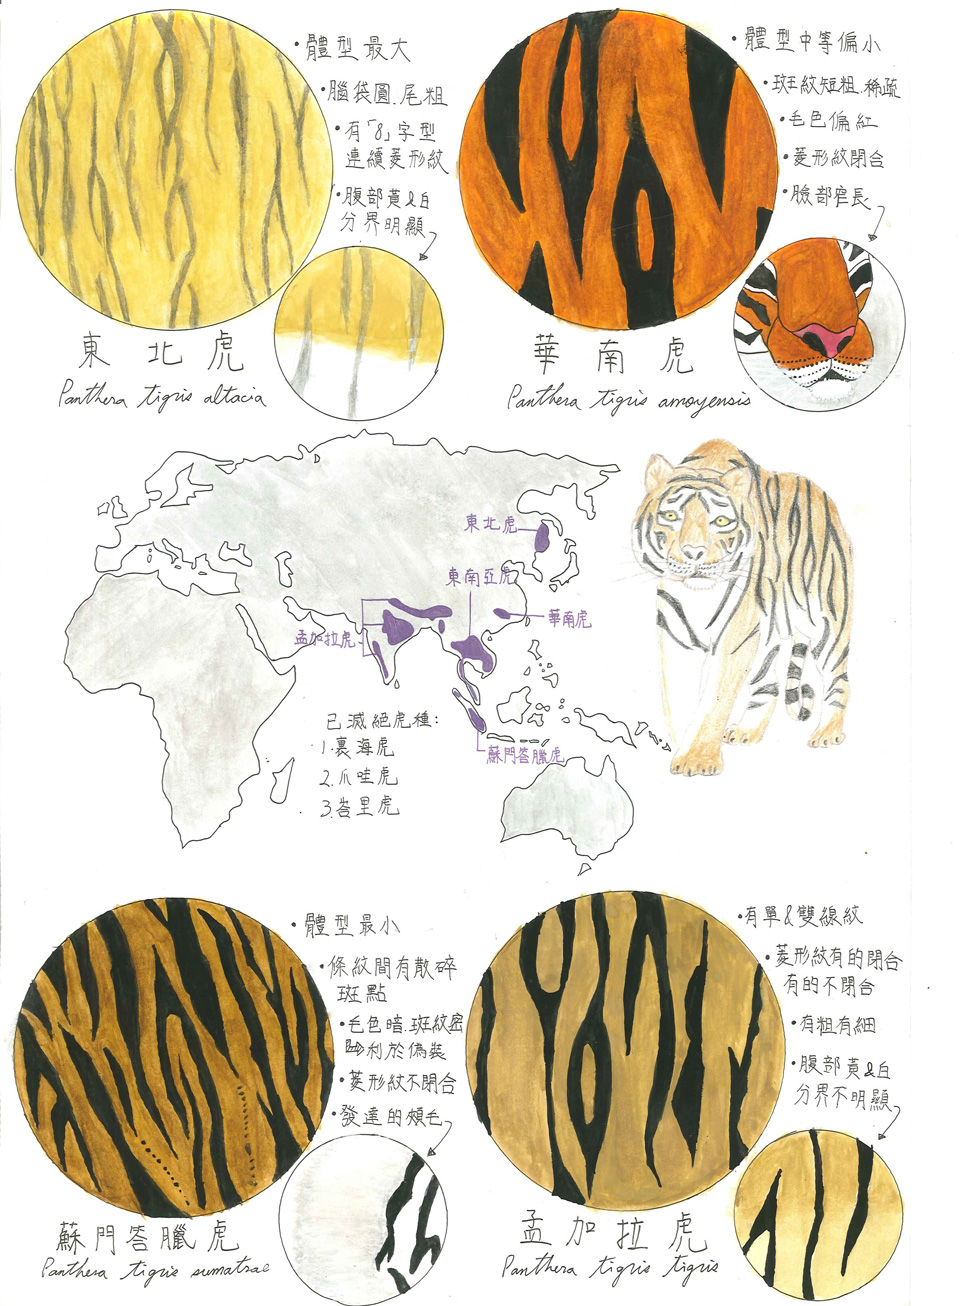 •體型最大
•腦袋圓.尾粗
•有「8」字型
連續菱形紋
•腹部黃&白
分界明顯
東北虎
Panthera tigris altacia
•體型中等偏小
•斑紋短粗.稀疏
•毛色偏紅
•菱形紋閉合
•臉部窄長
華南虎
Panthera tigris amoyensis
東北虎
東南亞虎
華南虎
孟加拉虎
蘇門答臘虎
已滅絕虎種:
1.裏海虎
2.爪哇虎
3.峇里虎
•體型最小
•條紋間有散碎
斑點
•毛色暗.斑紋密
⇨利於偽裝
•菱形紋不閉合
•發達的頰毛
蘇門答臘虎
Panthera tigris sumatrae
•有單&雙線紋
•菱形紋有的閉合
有的不閉合
•有粗有細
•腹部黃&白
分界不明顯
孟加拉虎
Panthera tigris tigris